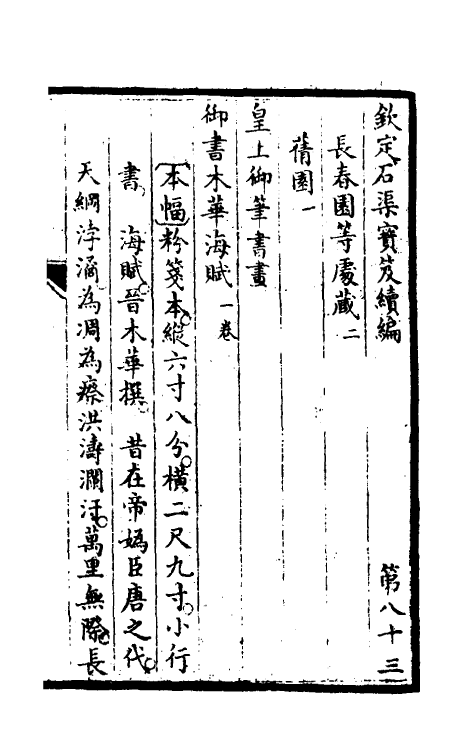 欽定石渠寶笈續編 第八十三
長春園等處藏二
蒨園一
皇上御筆書畫
御書木華海賦一卷
本幅粉箋本縱六寸八分橫二尺九寸小行
書 海賦晉木華撰 昔在帝媯臣唐之代
天綱浡潏為凋為瘵洪濤瀾汗萬里無際長